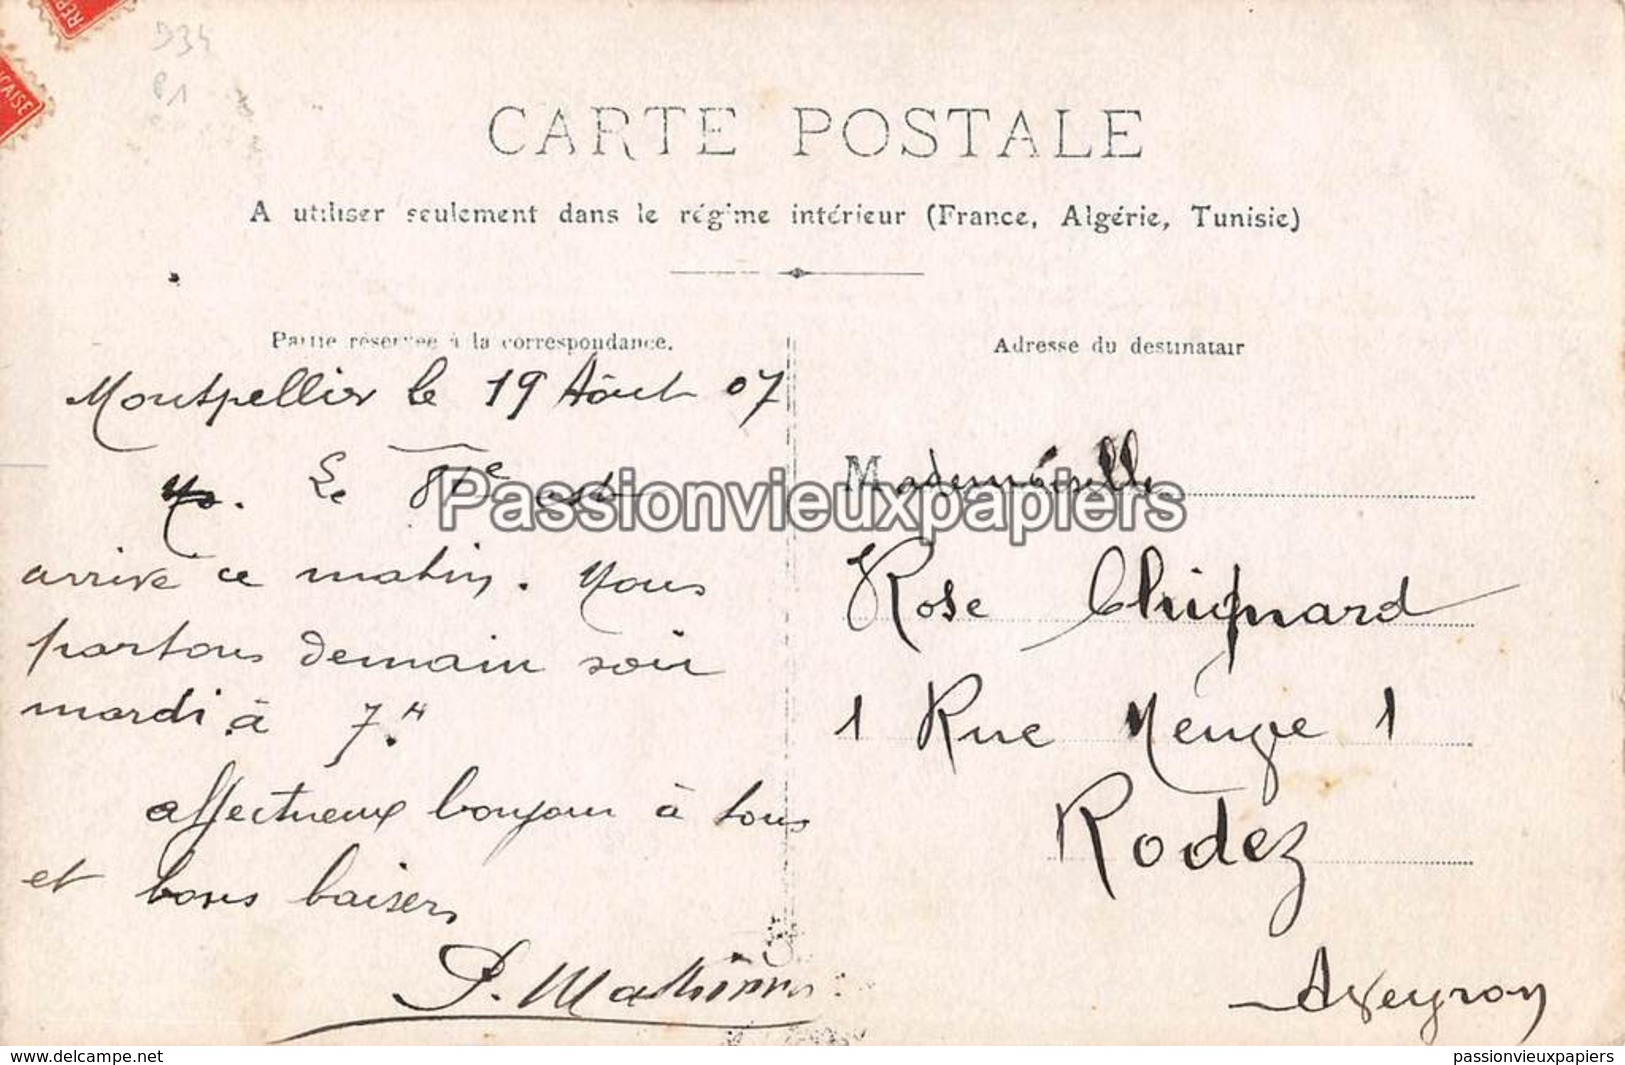 REP
ÇAISE
D34
P1
CARTE POSTALE
A utiliser seulement dans le régime intérieur (France, Algérie, Tunisie)
Partie réservée à la correspondance.
Adresse du destinatair
Montpellier le 19 Août 07
Le 81e est
arrivé ce matin. Nous
partons demain soir
mardi à 7H.
affectueux bonjour à tous
et bons baisers
Mademoiselle
Rose Chignard
1 Rue Neuve 1
Rodez
Aveyron
Passionvieuxpapiers
www.delcampe.net
passionvieuxpapiers